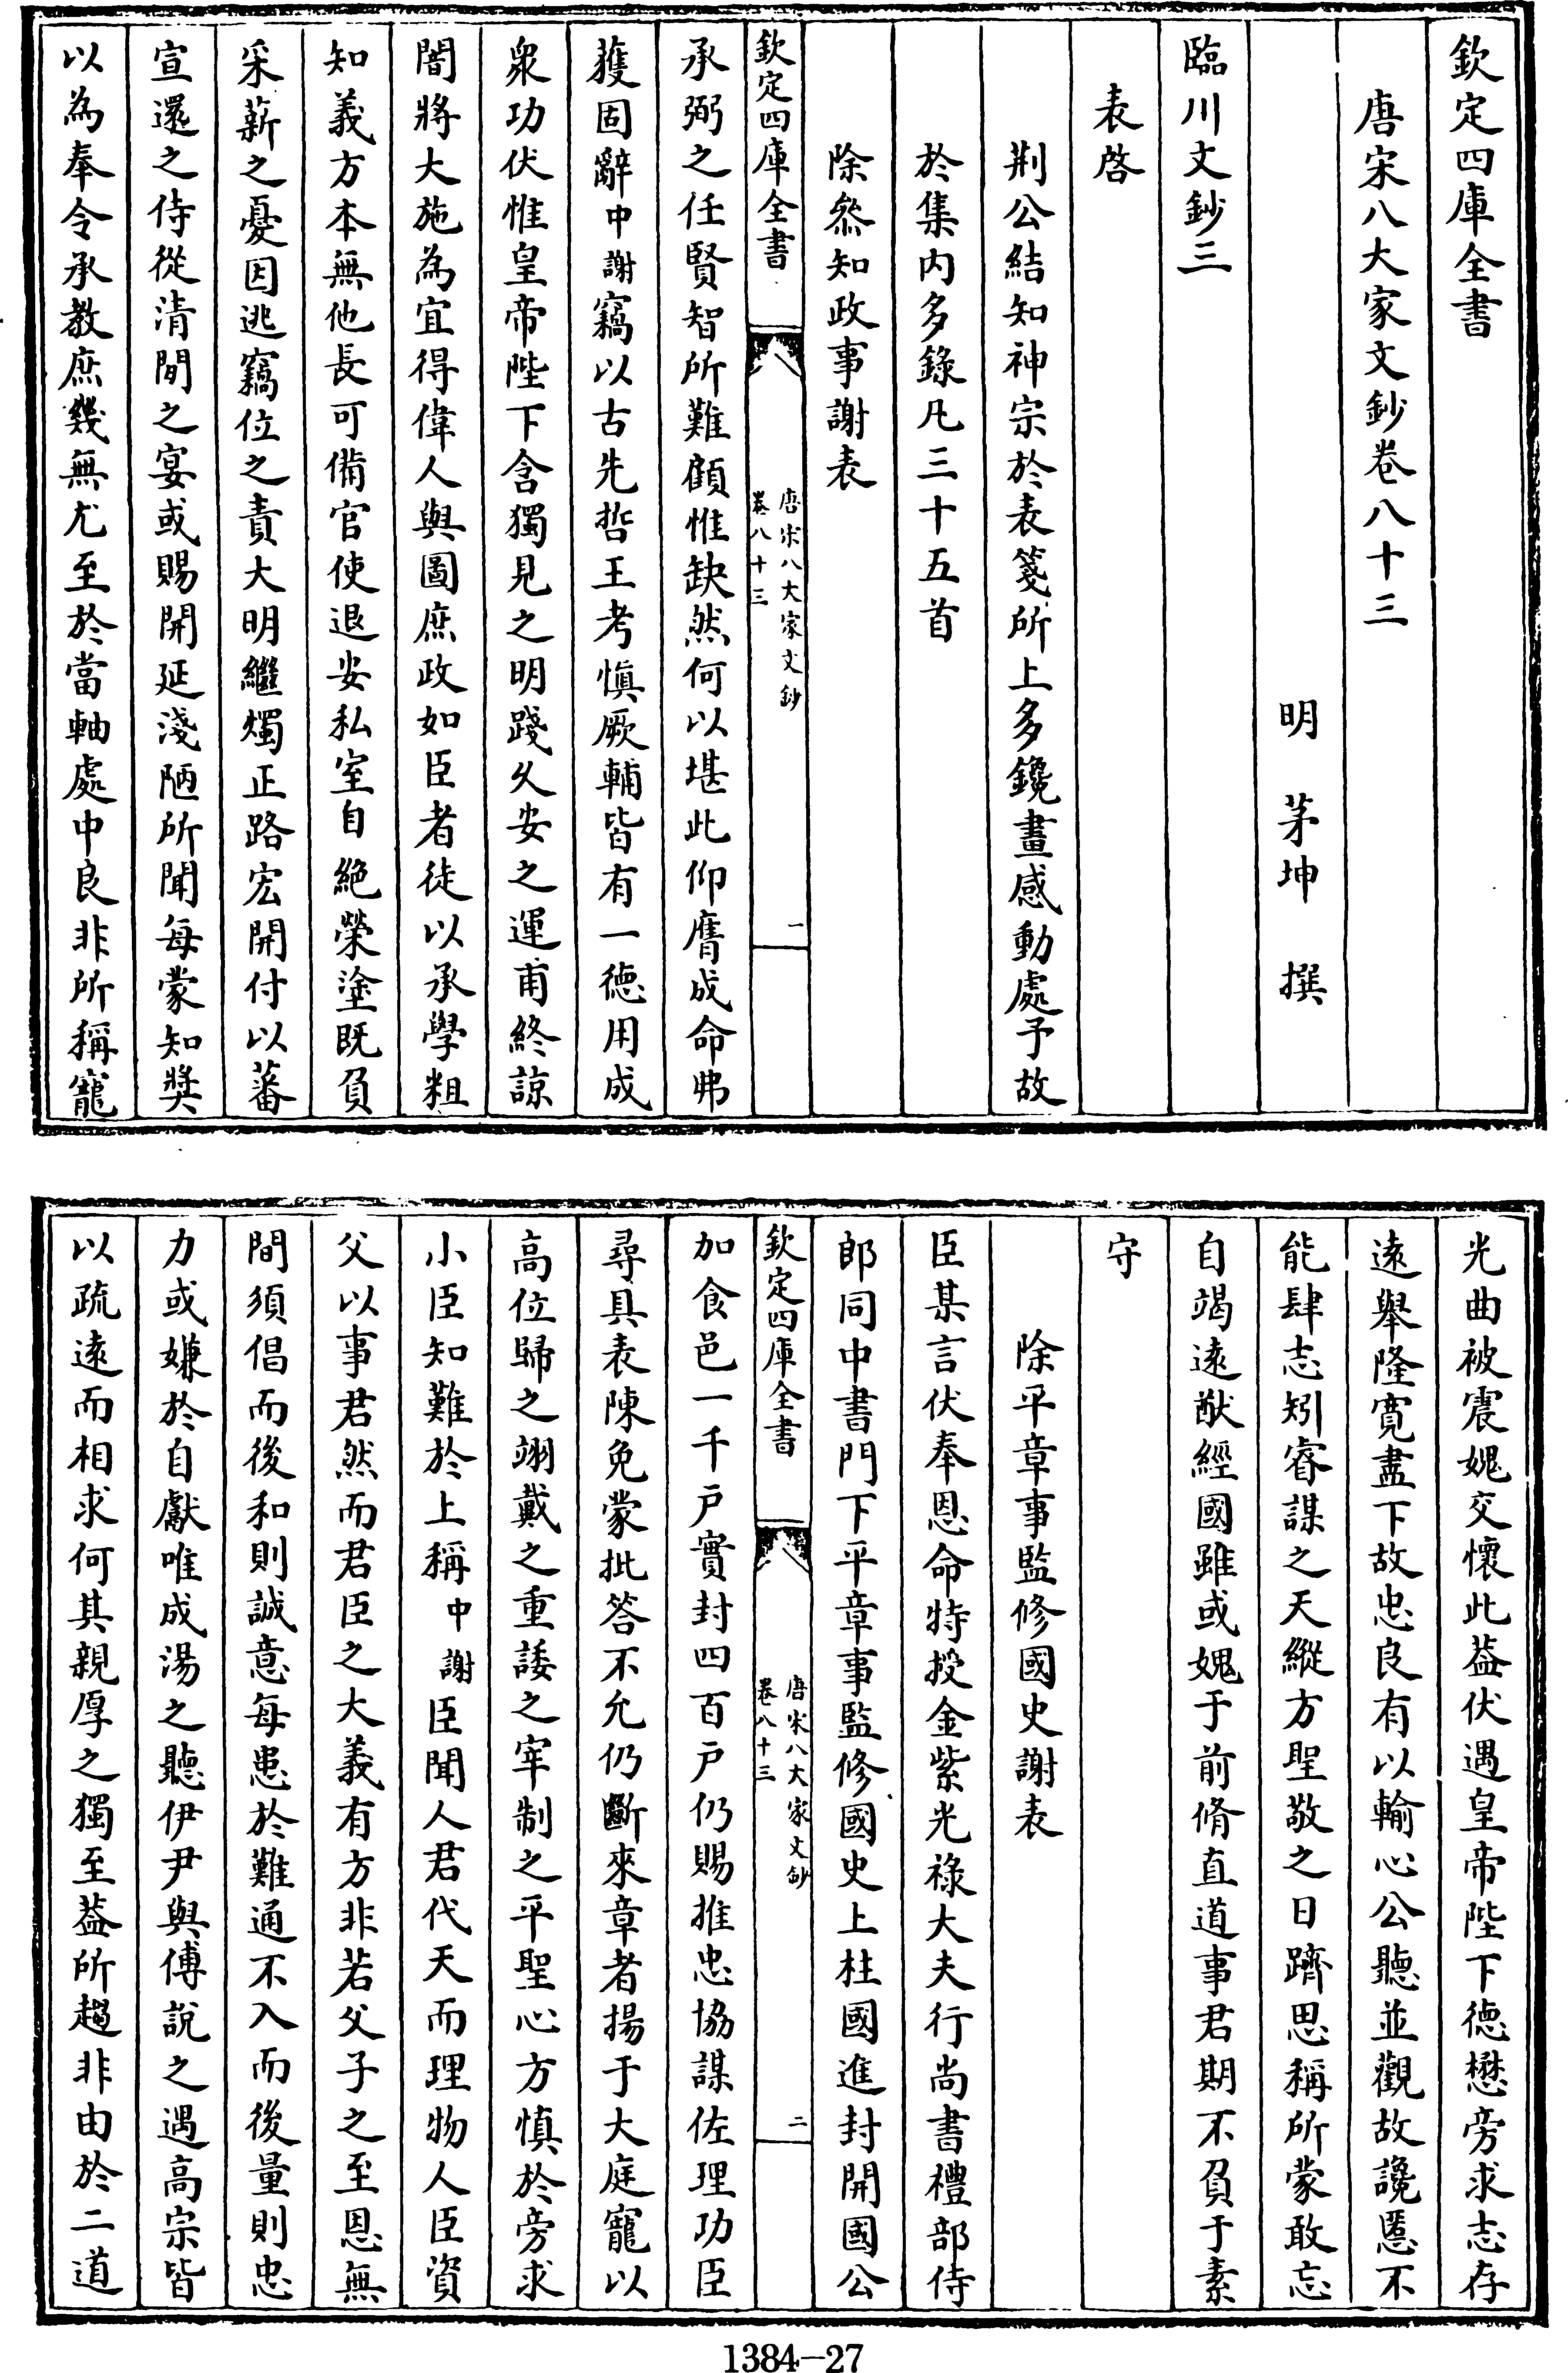 欽定四庫全書
唐宋八大家文鈔卷八十三
明　茅坤　撰
臨川文鈔三
表啓
荆公結知神宗於表箋所上多鑱畫感動處予故
於集内多錄凡三十五首
除叅知政事謝表
欽定四庫全書
唐宋八大家文鈔
卷八十三
一
承弼之任賢智所難顧惟缺然何以堪此仰膺成命弗
獲固辭中謝竊以古先哲王考慎厥輔皆有一德用成
衆功伏惟皇帝陛下含獨見之明踐久安之運甫終諒
闇將大施為宜得偉人與圖庶政如臣者徒以承學粗
知義方本無他長可備官使退安私室自絶榮塗既負
采薪之憂因逃竊位之責大明繼燭正路宏開付以蕃
宣還之侍從清閒之宴或賜開延淺陋所聞每蒙知奬
以為奉令承教庶幾無尤至於當軸處中良非所稱寵
光曲被震媿交懷此葢伏遇皇帝陛下德懋旁求志存
遠舉隆寛盡下故忠良有以輸心公聽並觀故讒慝不
能肆志矧睿謀之天縱方聖敬之日躋思稱所蒙敢忘
自竭遠猷經國雖或媿于前脩直道事君期不負于素
守
除平章事監修國史謝表
臣某言伏奉恩命特授金紫光祿大夫行尚書禮部侍
郎同中書門下平章事監修國史上柱國進封開國公
欽定四庫全書
唐宋八大家文鈔
卷八十三
二
加食邑一千户實封四百户仍賜推忠協謀佐理功臣
尋具表陳免蒙批答不允仍斷來章者揚于大庭寵以
高位歸之翊戴之重諉之宰制之平聖心方慎於旁求
小臣知難於上稱中謝臣聞人君代天而理物人臣資
父以事君然而君臣之大義有方非若父子之至恩無
間須倡而後和則誠意每患於難通不入而後量則忠
力或嫌於自獻唯成湯之聽伊尹與傅說之遇高宗皆
以疏遠而相求何其親厚之獨至葢所趨非由於二道
1384-27